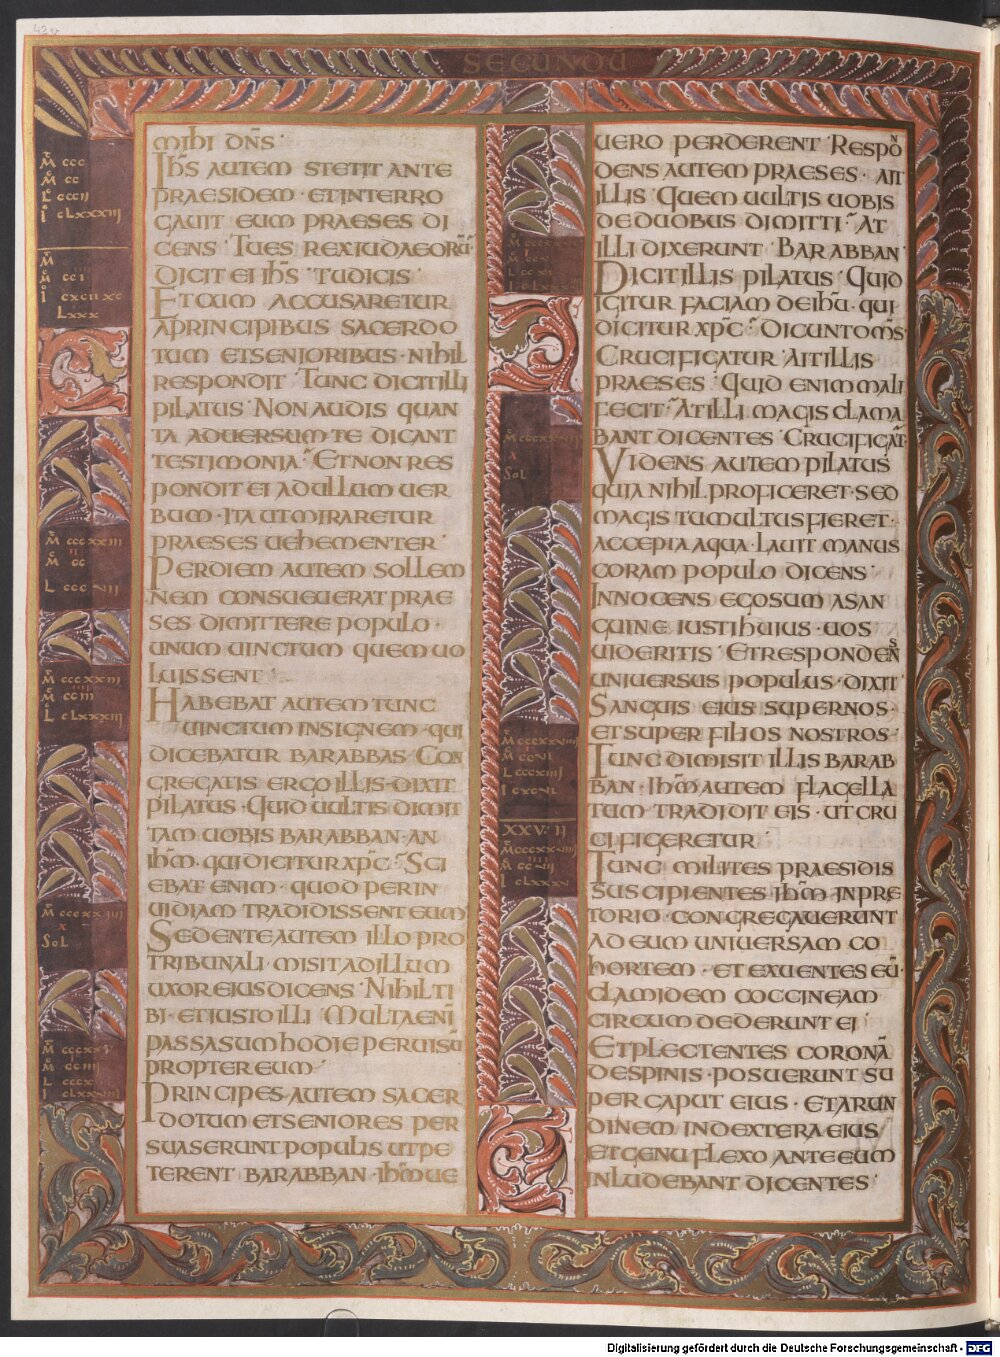 42v
SECUNDŪ
MIHI DN̄S
IHS AUTEM STETIT ANTE
PRAESIDEM · ET INTERRO
GAUIT EUM PRAESES DI
CENS TU ES REX IUDAEORŪ
DICIT EI IHS TU DICIS
ET CUM ACCUSARETUR
A PRINCIPIBUS SACERDO
TUM ET SENIORIBUS · NIHIL
RESPONDIT TUNC DICIT ILLI
PILATUS NON AUDIS QUAN
TA ADUERSUM TE DICANT
TESTIMONIA ET NON RES
PONDIT EI AD ULLUM UER
BUM · ITA UT MIRARETUR
PRAESES UEHEMENTER
PER DIEM AUTEM SOLLEM
NEM CONSUEUERAT PRAE
SES DIMITTERE POPULO ·
UNUM UINCTUM QUEM UO
LUISSENT
HABEBAT AUTEM TUNC
UINCTUM INSIGNEM · QUI
DICEBATUR BARABBAS CON
GREGATIS ERGO ILLIS · DIXIT
PILATUS · QUID UULTIS DIMIT
TAM UOBIS BARABBAN · AN
IHM̄ · QUI DICITUR XPC̄ SCI
EBAT ENIM · QUOD PER IN
UIDIAM TRADIDISSENT EUM
SEDENTE AUTEM ILLO PRO
TRIBUNALI · MISIT AD ILLUM
UXOR EIUS DICENS NIHIL TI
BI · ET IUSTO ILLI MULTA ENĪ
PASSA SUM HODIE PER UISŪ
PROPTER EUM
PRINCIPES AUTEM SACER
DOTUM ET SENIORES PER
SUASERUNT POPULIS UT PE
TERENT BARABBAN · IHM̄ UE
UERO PERDERENT RESPON
DENS AUTEM PRAESES · AIT
ILLIS QUEM UULTIS UOBIS
DE DUOBUS DIMITTI AT
ILLI DIXERUNT BARABBAN
DICIT ILLIS PILATUS QUID
IGITUR FACIAM DE IHŪ · QUI
DICITUR XPC̄ DICUNT OMS̄
CRUCIFIGATUR AIT ILLIS
PRAESES QUID ENIM MALI
FECIT AT ILLI MAGIS CLAMA
BANT DICENTES CRUCIFIGAT̄
VIDENS AUTEM PILATUS
QUIA NIHIL PROFICERET · SED
MAGIS TUMULTUS FIERET ·
ACCEPTA AQUA · LAUIT MANUS
CORAM POPULO DICENS
INNOCENS EGO SUM A SAN
GUINE IUSTI HUIUS · UOS
UIDERITIS ET RESPONDENS
UNIUERSUS POPULUS · DIXIT
SANGUIS EIUS SUPER NOS ·
ET SUPER FILIOS NOSTROS ·
TUNC DIMISIT ILLIS BARAB
BAN · IHM̄ AUTEM FLAGELLA
TUM TRADIDIT EIS · UT CRU
CIFIGERETUR
TUNC MILITES PRAESIDIS
SUSCIPIENTES IHM̄ IN PRE
TORIO · CONGREGAUERUNT
AD EUM UNIUERSAM CO
HORTEM · ET EXUENTES EŪ ·
CLAMIDEM COCCINEAM
CIRCUMDEDERUNT EI
ET PLECTENTES CORONĀ
DE SPINIS · POSUERUNT SU
PER CAPUT EIUS · ET ARUN
DINEM IN DEXTERA EIUS
ET GENU FLEXO ANTE EUM
INLUDEBANT DICENTES
Digitalisierung gefördert durch die Deutsche Forschungsgemeinschaft - DFG